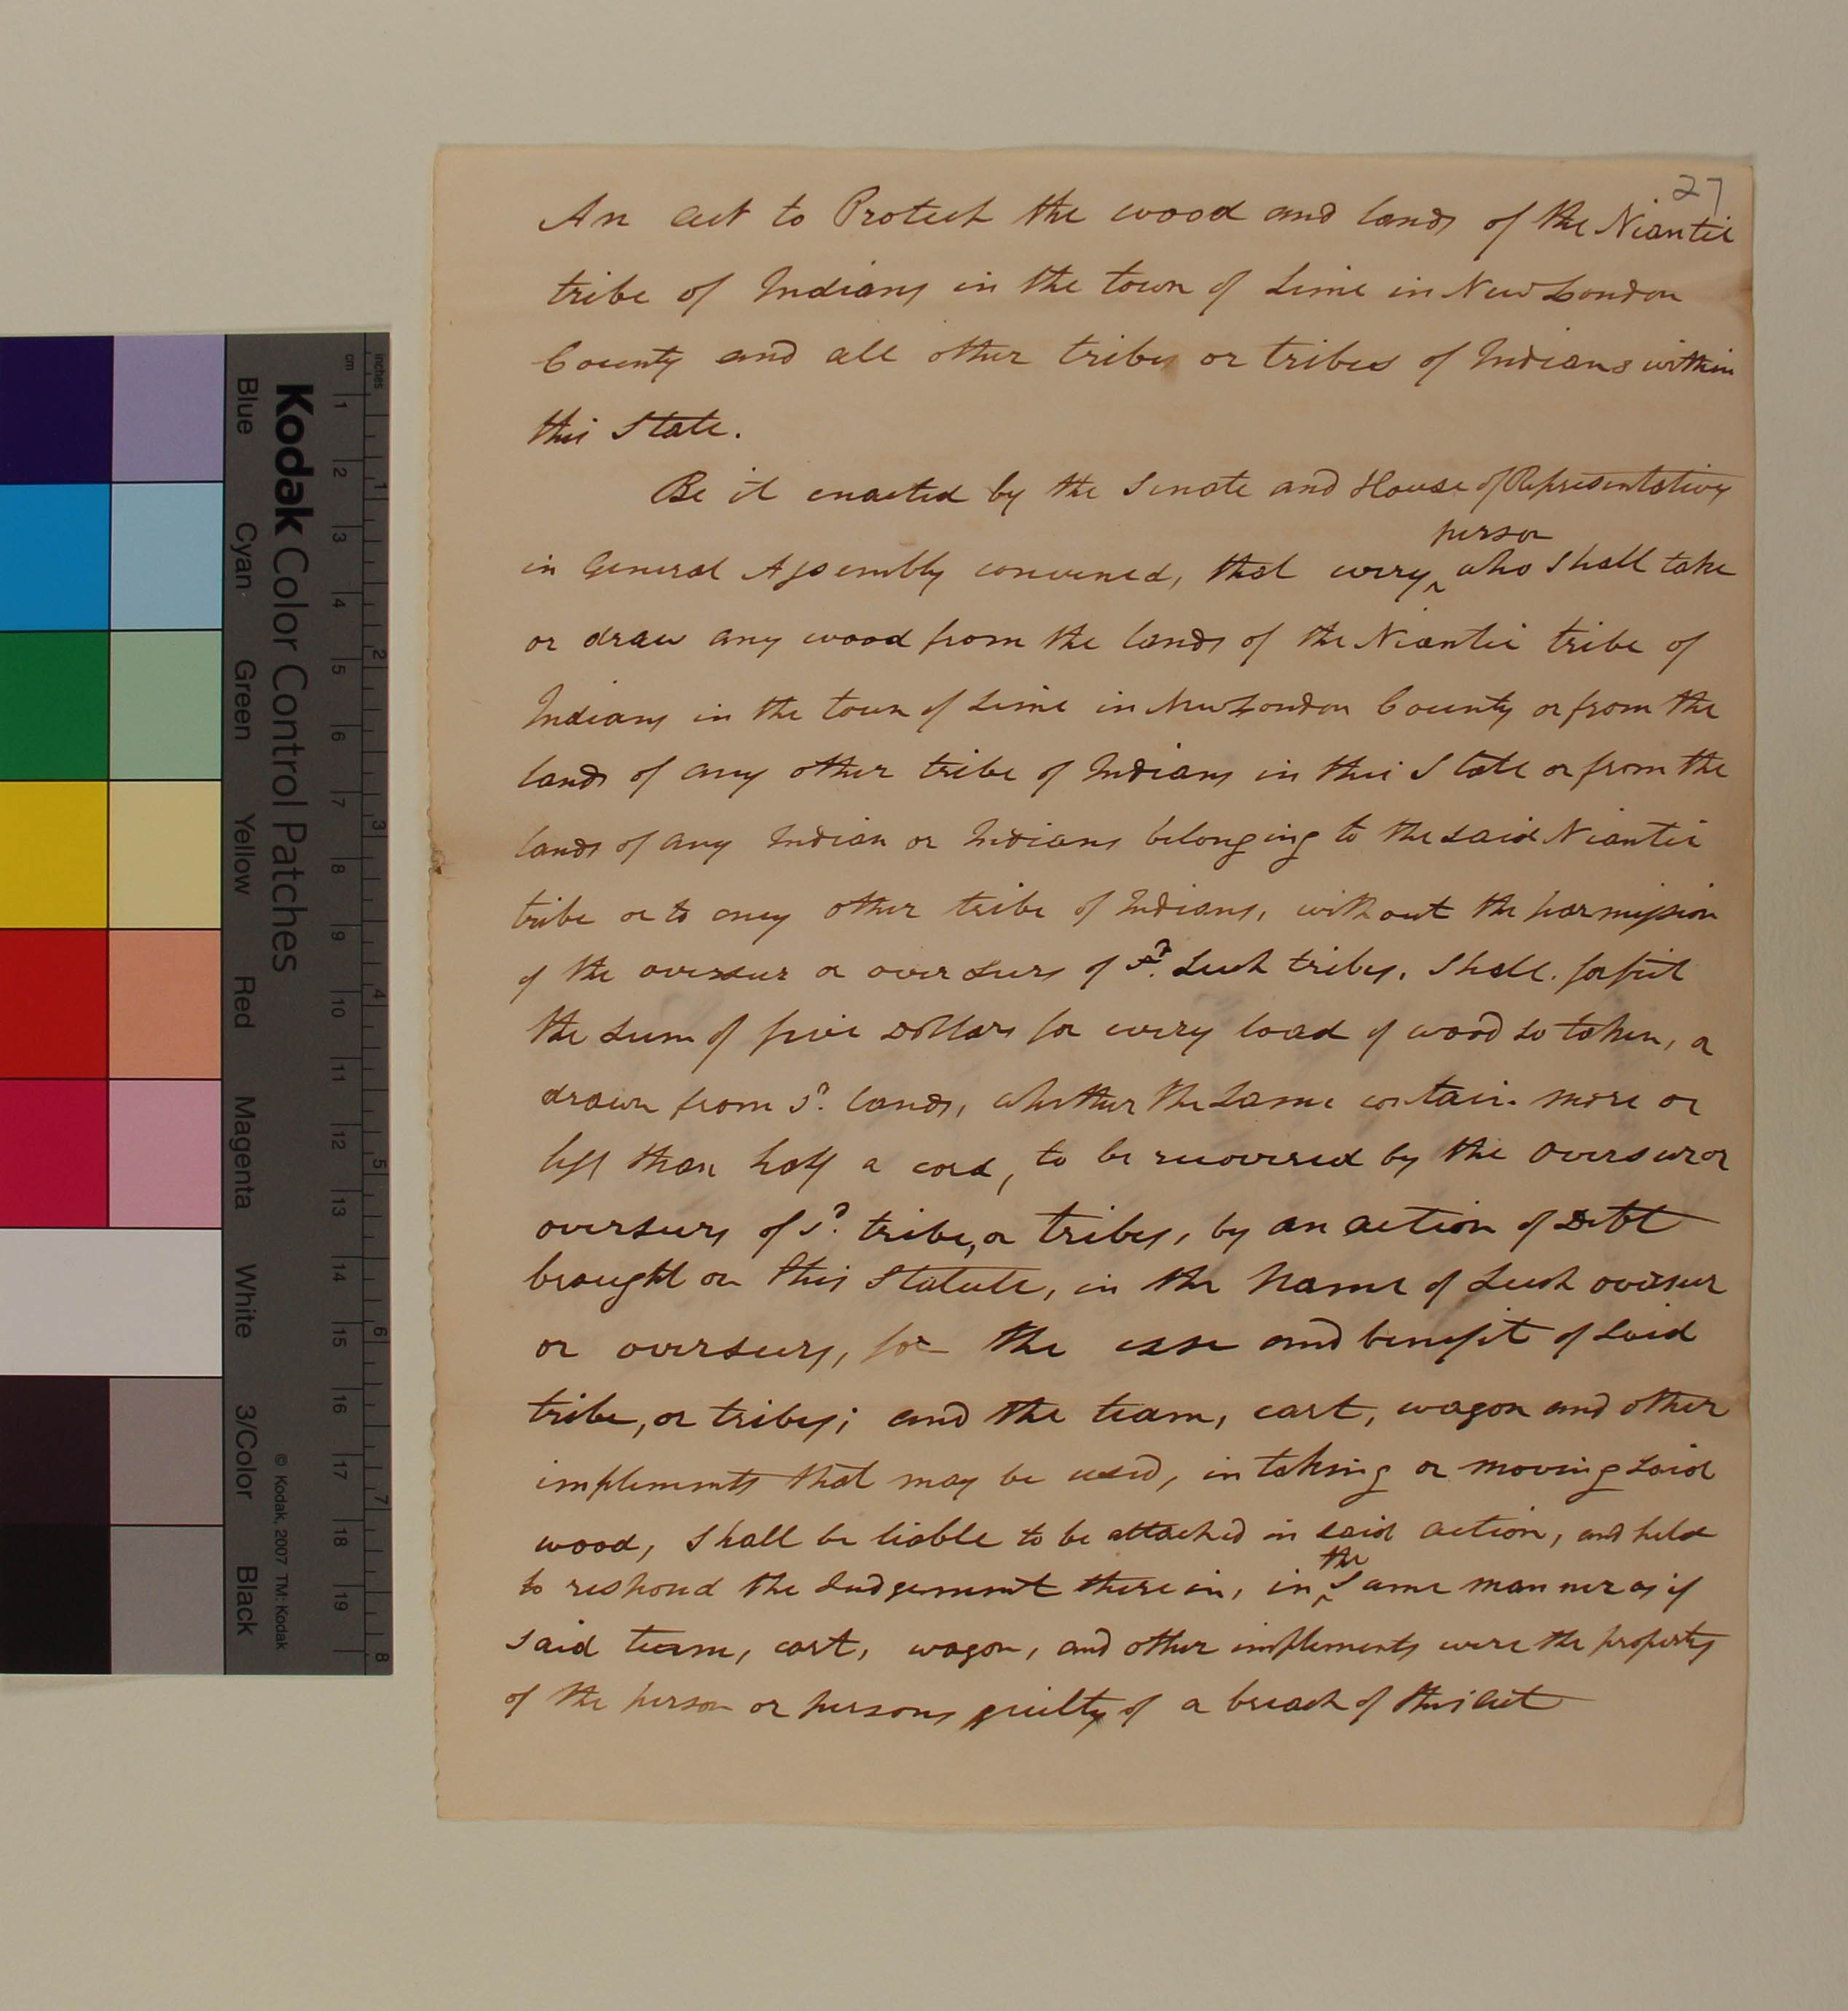 27
An act to Protect the wood and lands of the Niantic
tribe of Indians in the town of Lime in New London
County and all other tribes or tribes of Indians within
this State.
Be it enacted by the Senate and House of Representatives
person
in General Assembly convened, that every ‸ who Shall take
or draw any wood from the lands of the Niantic tribe of
Indians in the town of Lime in New London County or from the
lands of any other tribe of Indians in this State or from the
lands of any Indian or Indians belonging to the said Niantic
tribe or to any other tribe of Indians, without the permission
of the overseer or overseers of sd. Such tribes, Shall forfeit
the Sum of five Dollars for every load of wood so taken, or
drawn from sd. lands, whether the Same contain more or
less than half a cord, to be recovered by the Overseer or
overseers of sd. tribe, or tribes, by an action of Debt
brought on this Statute, in the Name of Such overseer
or overseers, for the use and benefit of Said
tribe, or tribes; and the team, cart, wagon and other
implements that may be used, in taking or moving Said
wood, Shall be liable to be attached in said action, and held
the
to respond the Judgement therein, in ‸ Same manner as if
said team, cart, wagon, and other implements were the property
of the person or persons guilty of a breach of this act
inches
cm
1 2 3 4 5 6 7 8
1 2 3 4 5 6 7 8 9 10 11 12 13 14 15 16 17 18 19
Kodak Color Control Patches
© Kodak, 2007 TM: Kodak
Blue Cyan Green Yellow Red Magenta White 3/Color Black